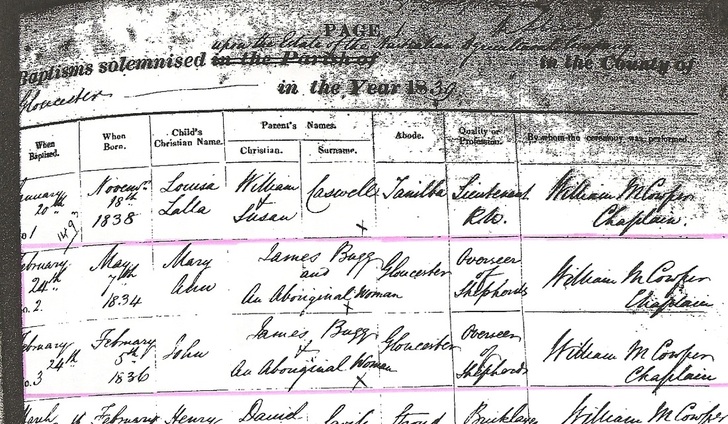 PAGE
upon the Estate of the Australian Agricultural Company
Baptisms solemnised in the Parish of in the County of
Gloucester in the Year 1839
When Baptised. When Born. Child's Christian Name. Parent's Names. Abode. Quality or Profession. By whom the ceremony was performed
Christian. Surname.
January Novemr Louisa William Caswell Tanilba Lieutenant William McCowper
20th 18th Lalla & R.N. Chaplain.
No 1 1838 Susan x
February May Mary James Bugg Gloucester Overseer William McCowper
24th 7th Ann and of Chaplain
No. 2. 1834 An Aboriginal Woman Shepherds
x
February February John James Bugg Gloucester Overseer William McCowper
24th 5th & of Chaplain
No. 3 1836 An Aboriginal Woman Shepherds
x
March February Henry Daniel Stroud William McCowper